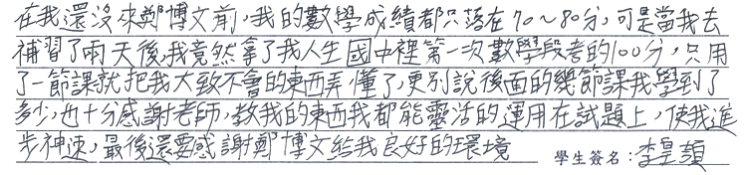 在我還沒來鄭博文前，我的數學成績都只落在70～80分，可是當我去
補習了兩天後，我竟然拿了我人生國中裡第一次數學段考的100分，只用
了一節課就把我大致不會的東西弄懂了，更別說後面的幾節課我學到了
多少，也十分感謝老師，教我的東西我都能靈活的運用在試題上，使我進
步神速，最後還要感謝鄭博文給我良好的環境 學生簽名：李昱頡